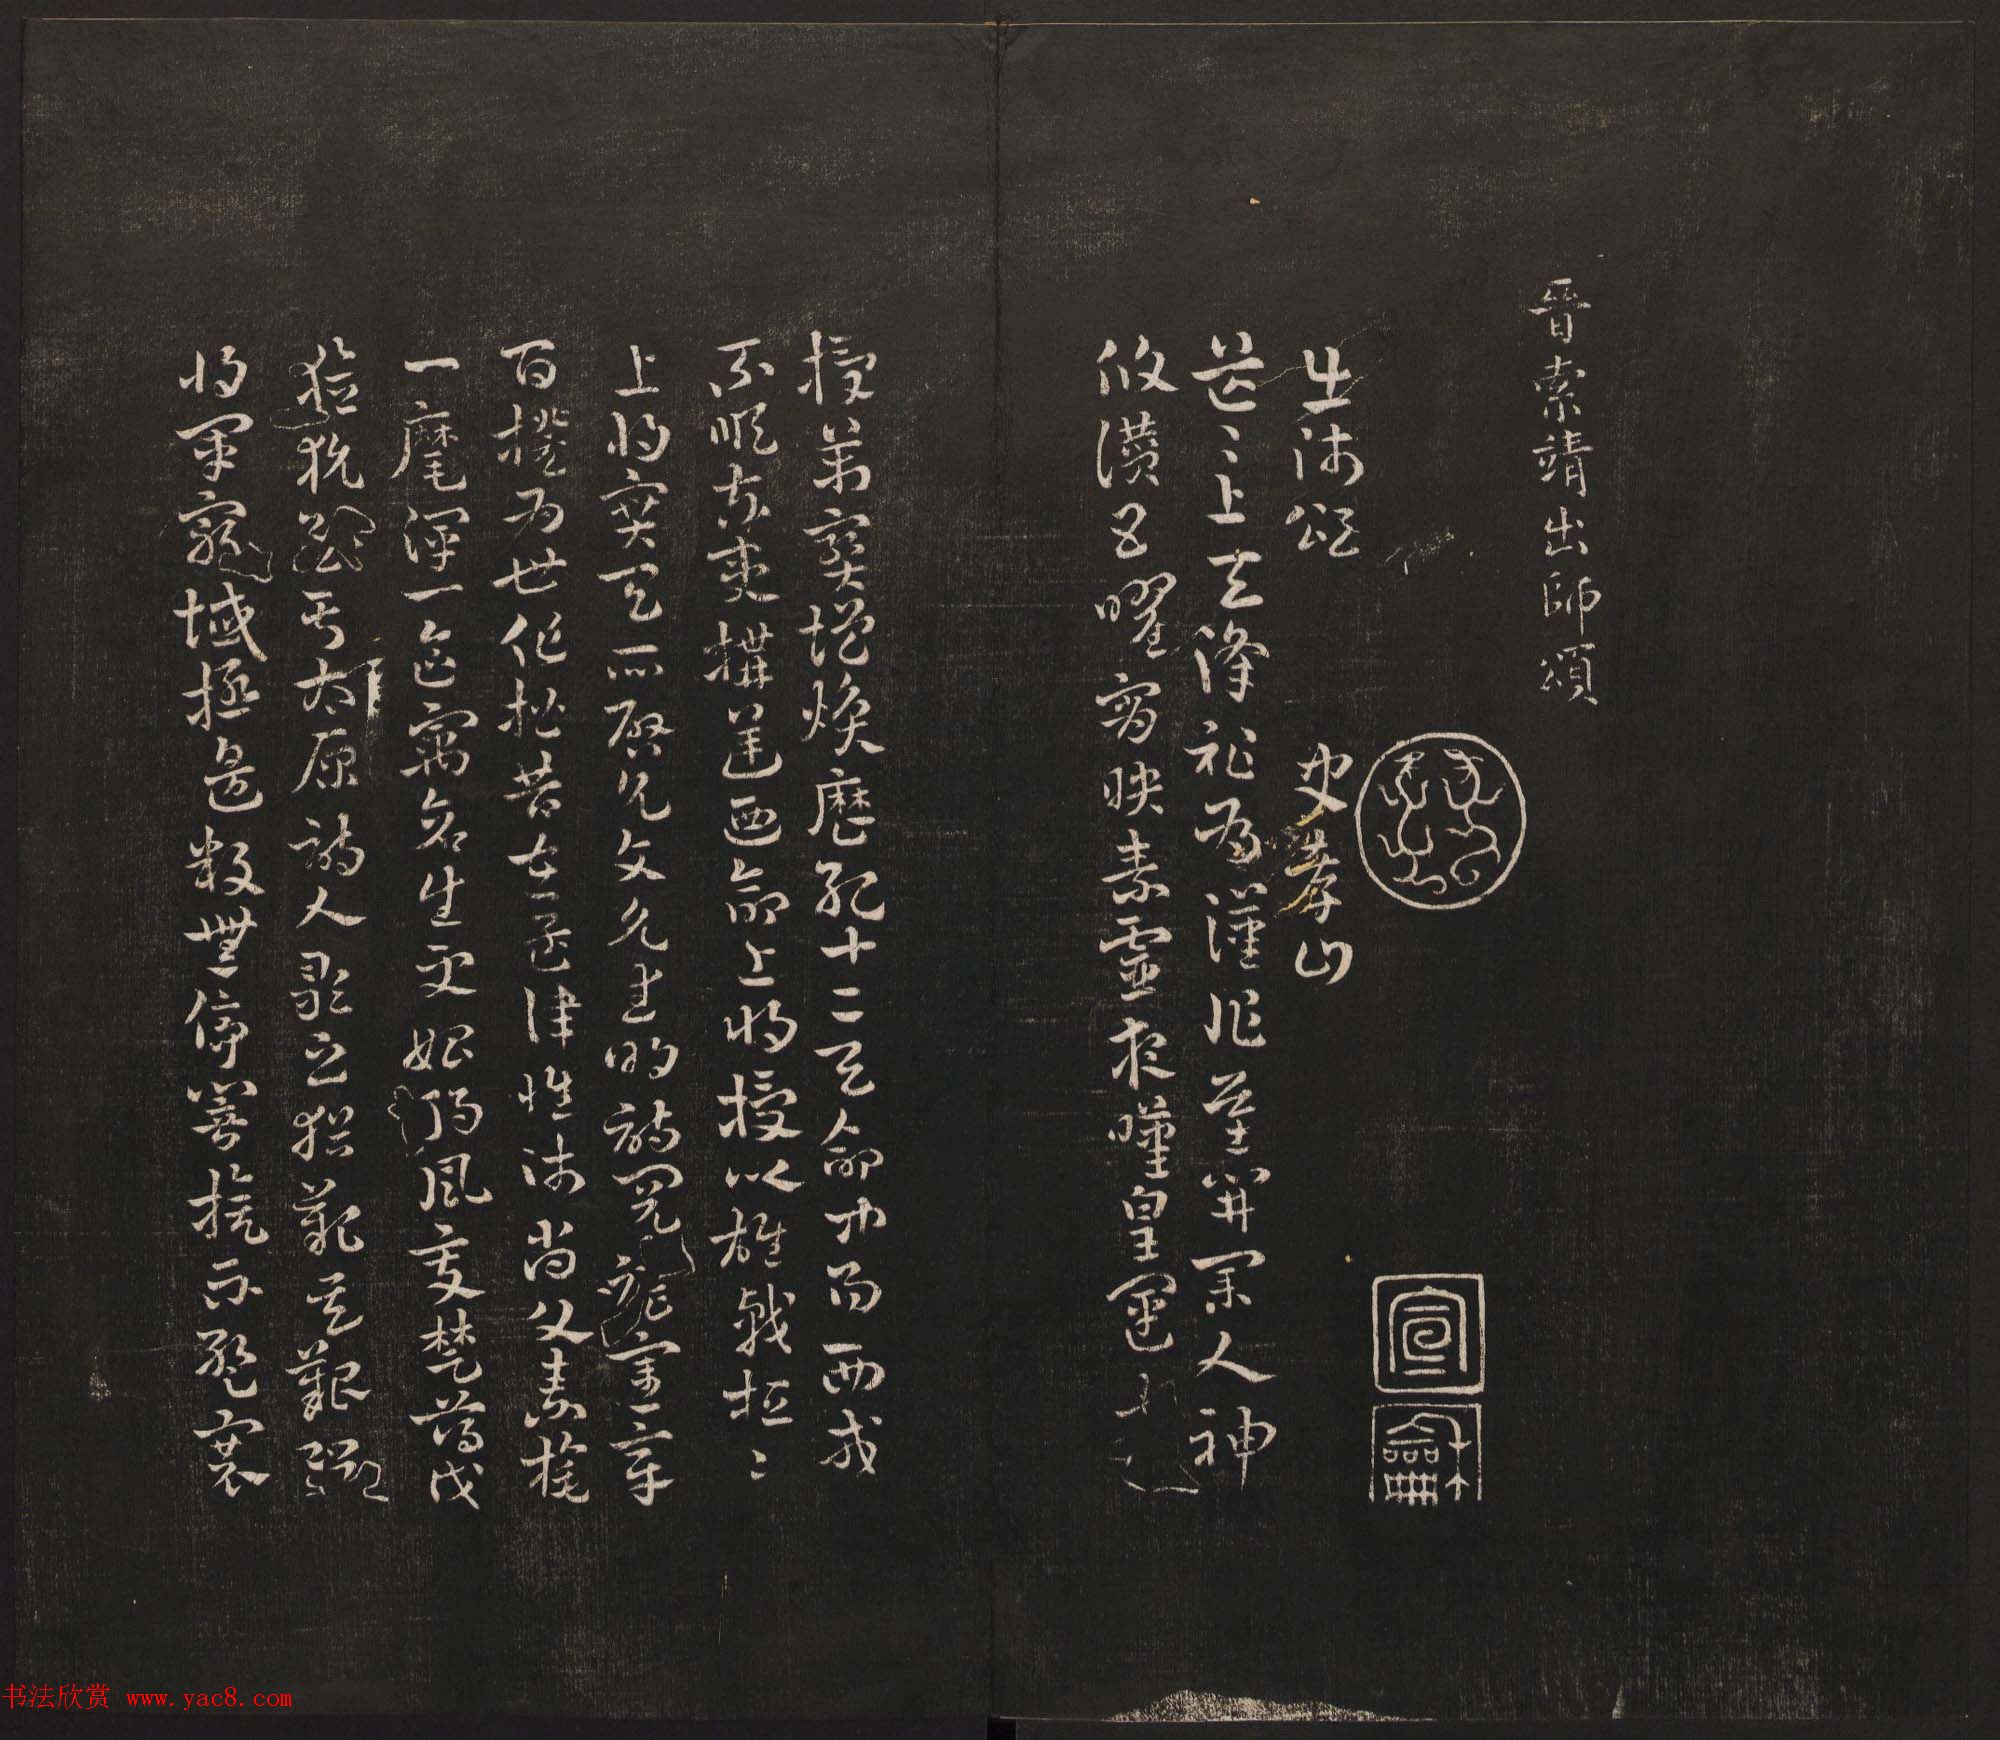 晋索靖出師頌
出師頌 史孝山
茫〻上天降祚為漢作基開業人神
攸讚五曜霄映素靈夜嘆皇運来
授萬寶增煥歷紀十二天命中易西戎
不順東夷構逆西命上將授以雄戟桓〻
上將寔天所啓允文允武明詩閱禮憲章
百揆為世作楷昔在孟津惟師尚父素旄
一麾渾一區宇蒼生更始朔風變楚薄伐
獫狁至于太原詩人歌之猶歎其艱況
將軍窮域極邊鼓無停響旗不蹔褰
宣
龢
书法欣赏 www.yac8.com